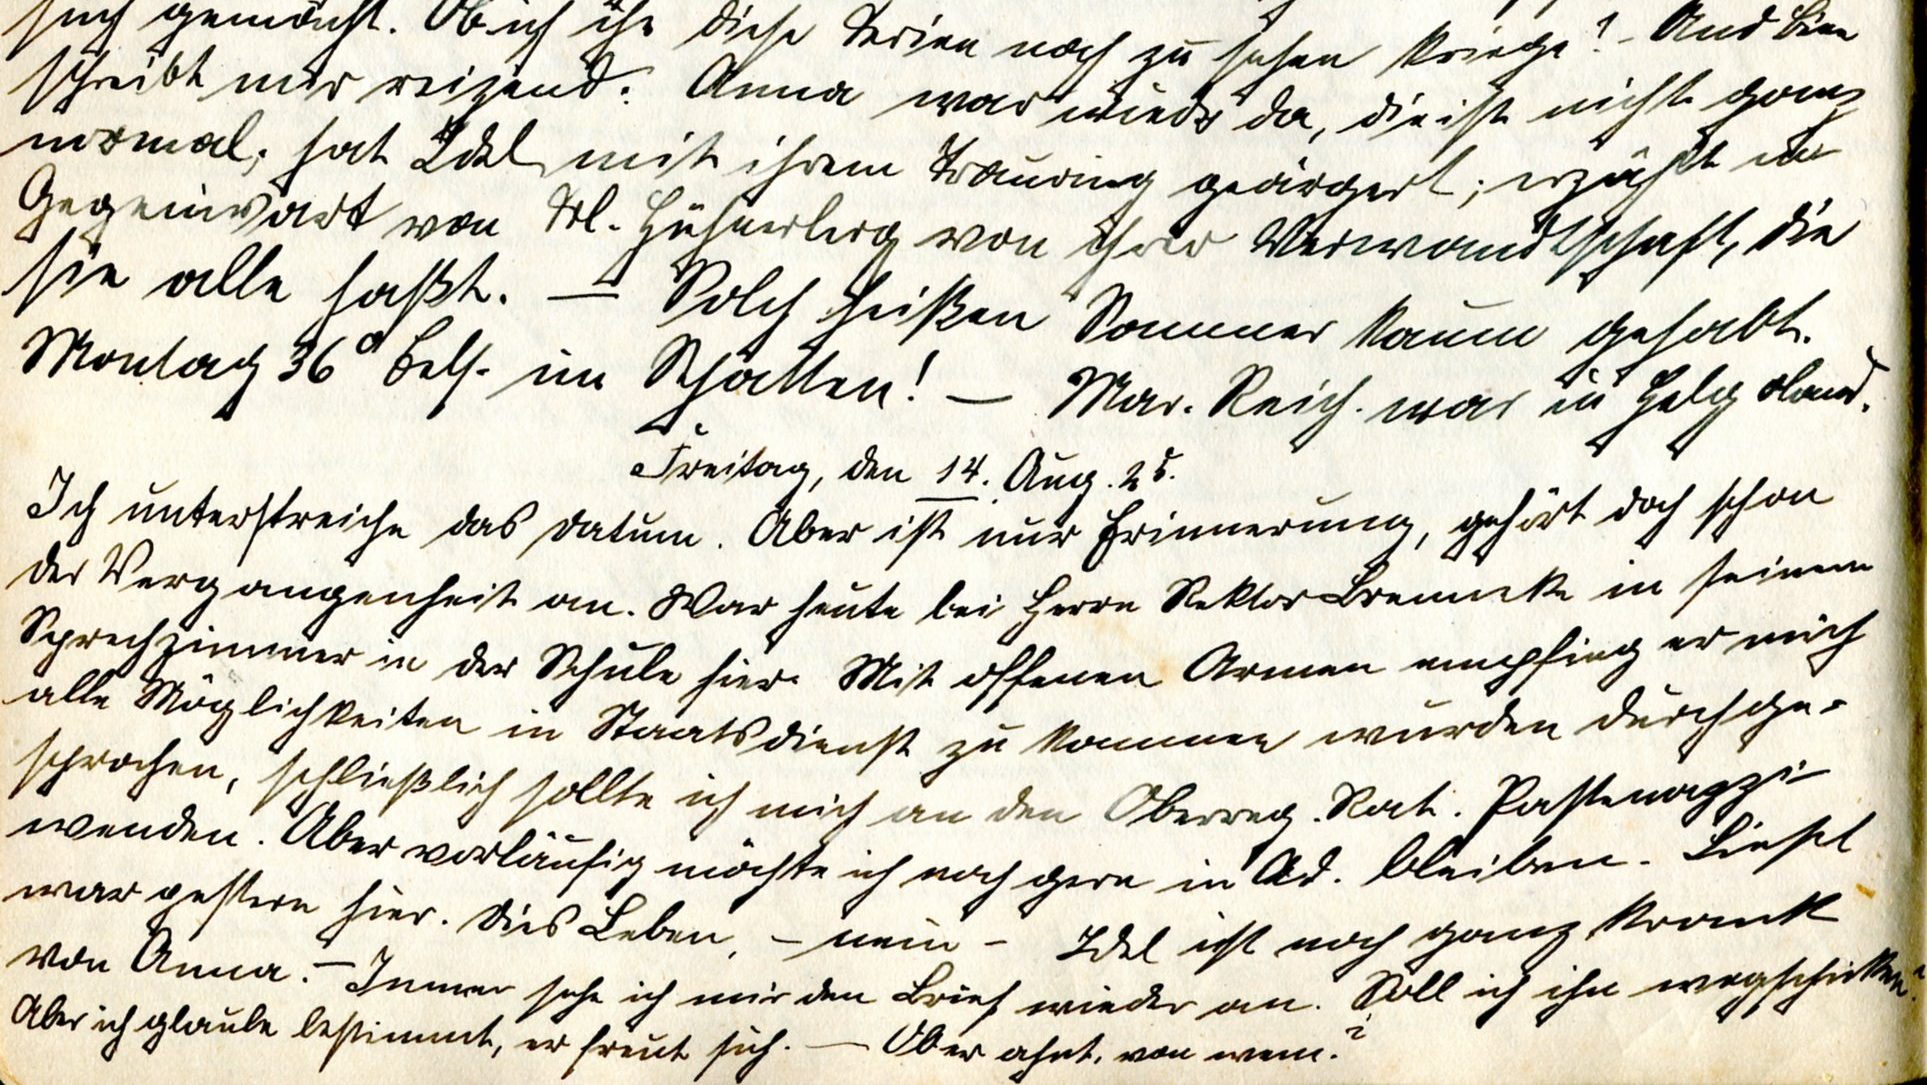 sich gemacht. Ob ich ihn diese Ferien noch zu sehen kriege? – Und
schreibt mir reizend. Anna war wieder da, die ist nicht ganz
normal, hat Idel mit ihrem Trauring geärgert; erzählt in
Gegenwart von Frl. Hühnerberg von ihrer Verwandtschaft, die
sie alle haßt. — Solch heißen Sommer kaum gehabt.
Montag 36° Cels. im Schatten! — Mar. Reich. war in Helgoland.
Freitag, den 14. Aug. 25.
Ich unterstreiche das Datum. Aber ist nur Erinnerung, gehört doch schon
der Vergangenheit an. War heute bei Herrn Rektor Brennecke in seinem
Sprechzimmer in der Schule hier. Mit offenen Armen empfing er mich
alle Möglichkeiten in Staatsdienst zu kommen wurden durchge-
sprochen, schließlich sollte ich mich an den Oberreg. Rat.
wenden. Aber vorläufig möchte ich noch gern in Ad. bleiben. Liesel
war gestern hier. Dies Leben, – nein – Idel ist noch ganz krank
von Anna. – Immer sehe ich mir den Brief wieder an. Soll ich ihn wegschicken?
Aber ich glaube bestimmt, er freut sich. — Ob er ahnt, von wem?